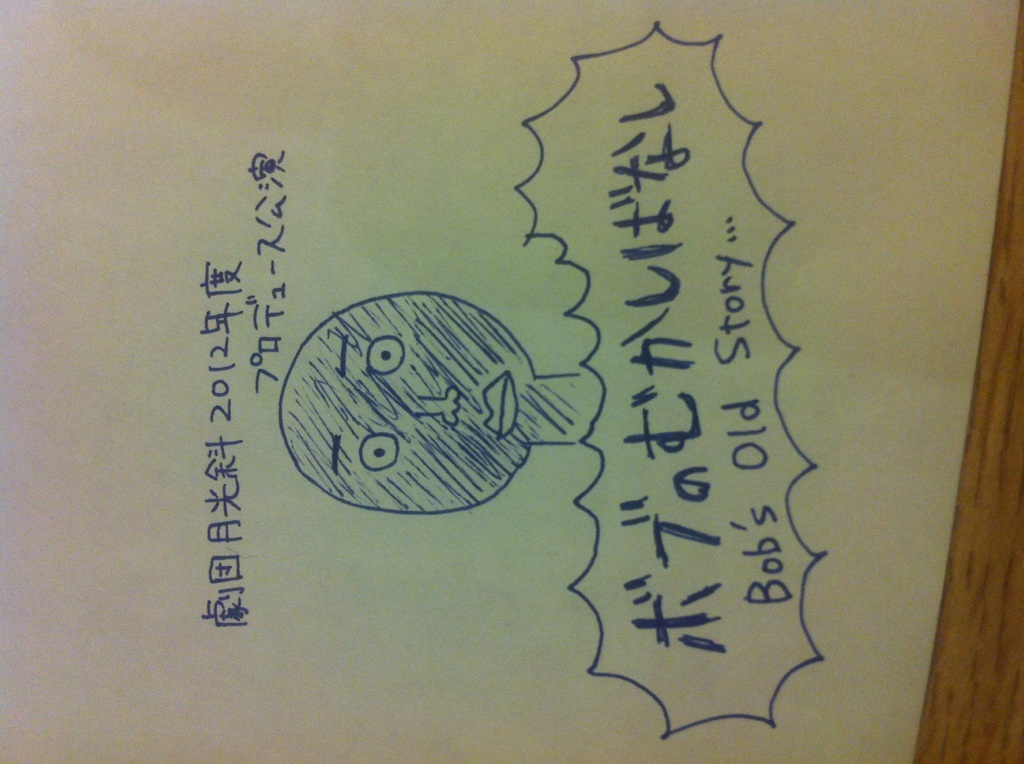 劇団月光斜2012年度
プロデュース公演
ボブのむかしばなし
Bob's Old Story...